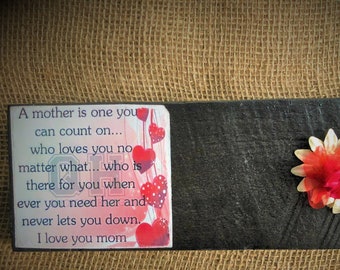 A mother is one you
can count on...
who loves you no
matter what... who is
there for you when
ever you need her and
never lets you down.
I love you mom